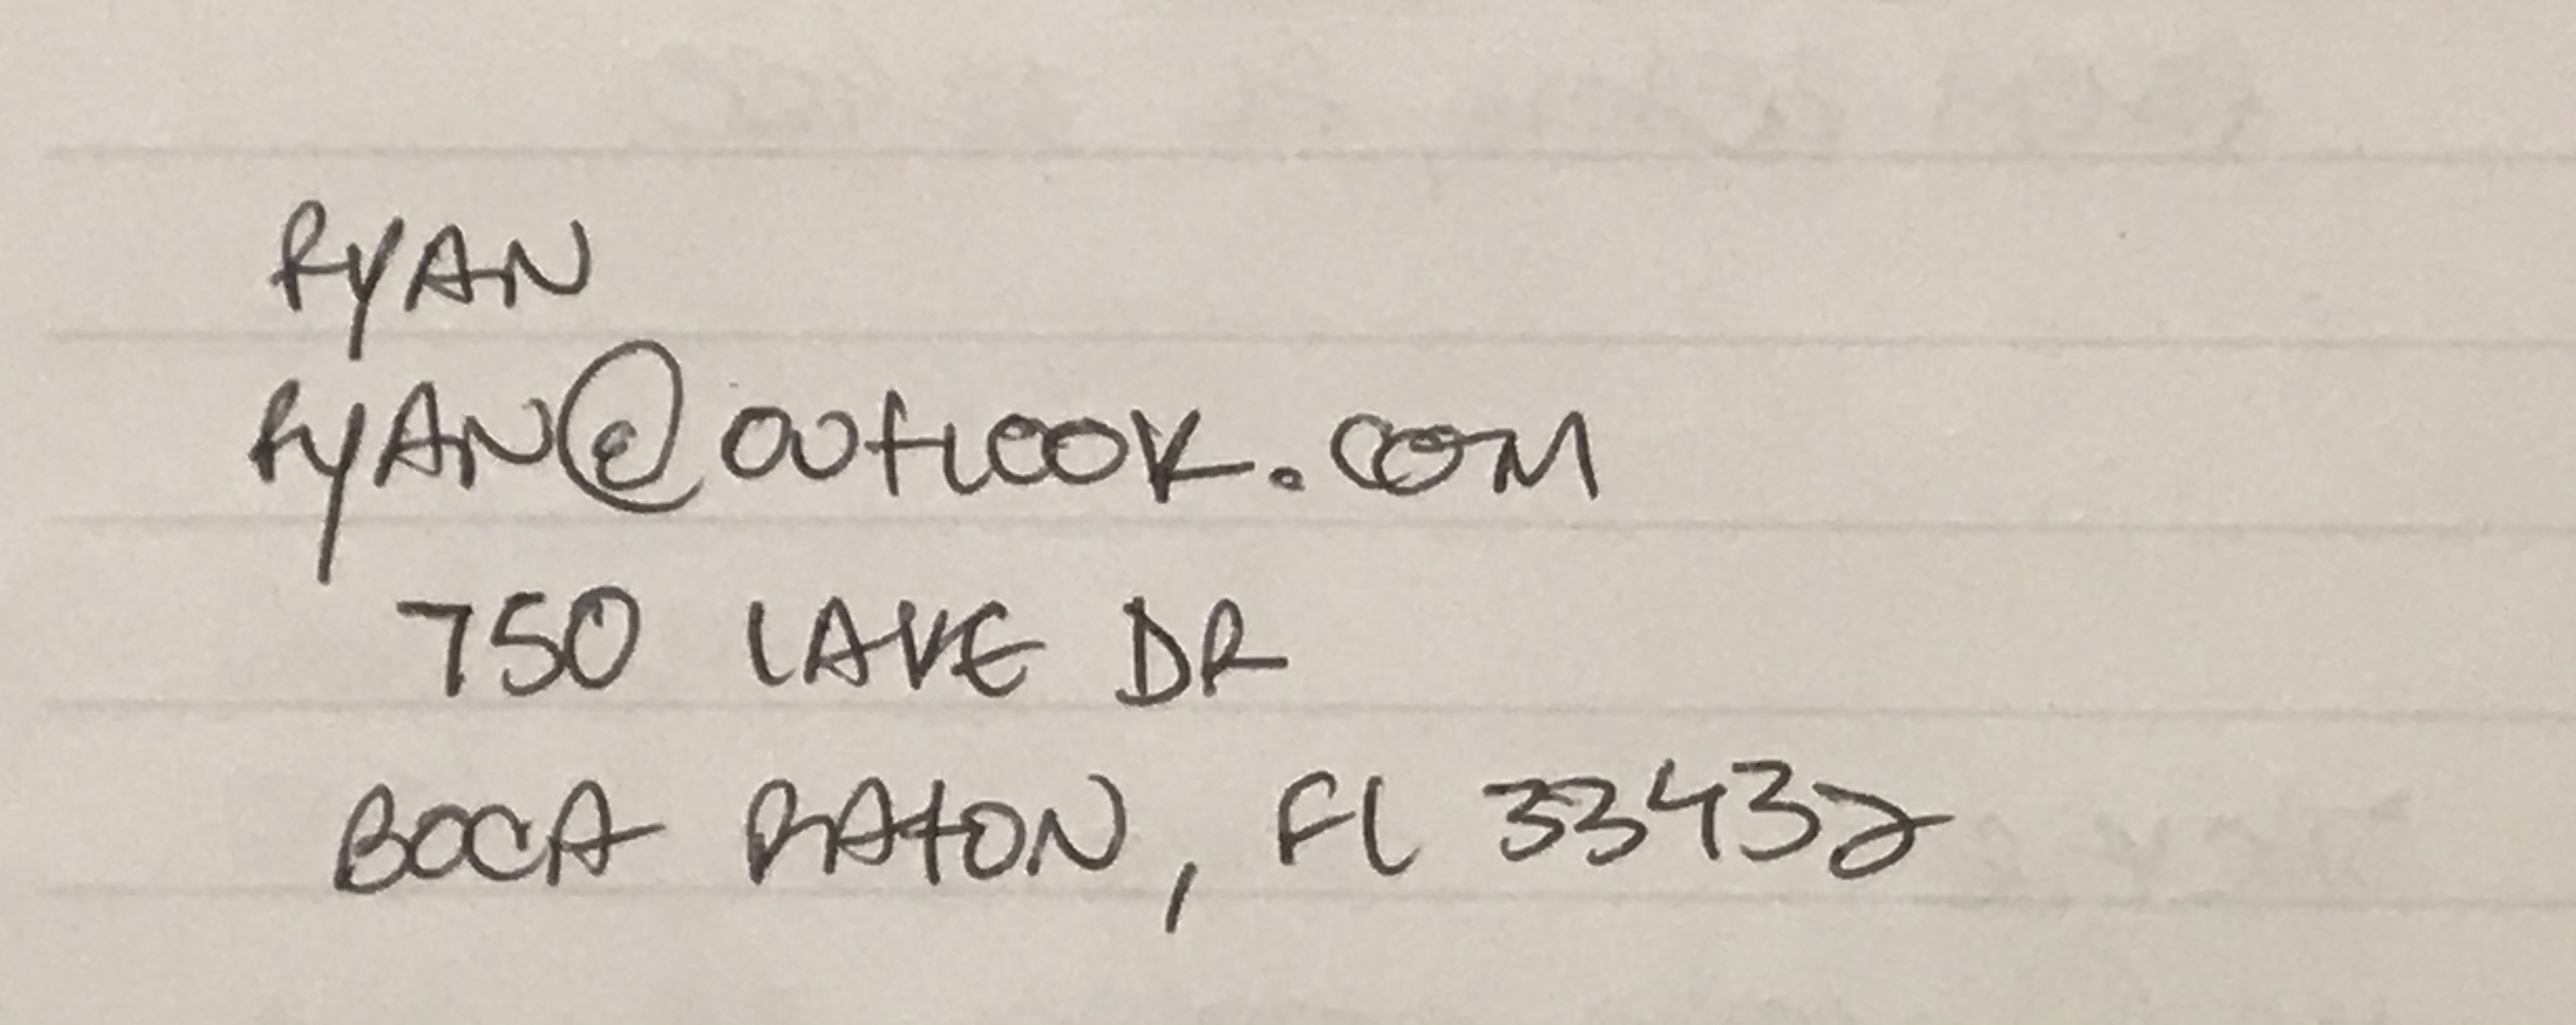 RYAN
RYAN@OUTLOOK.COM
750 LAKE DR
BOCA RATON, FL 33432